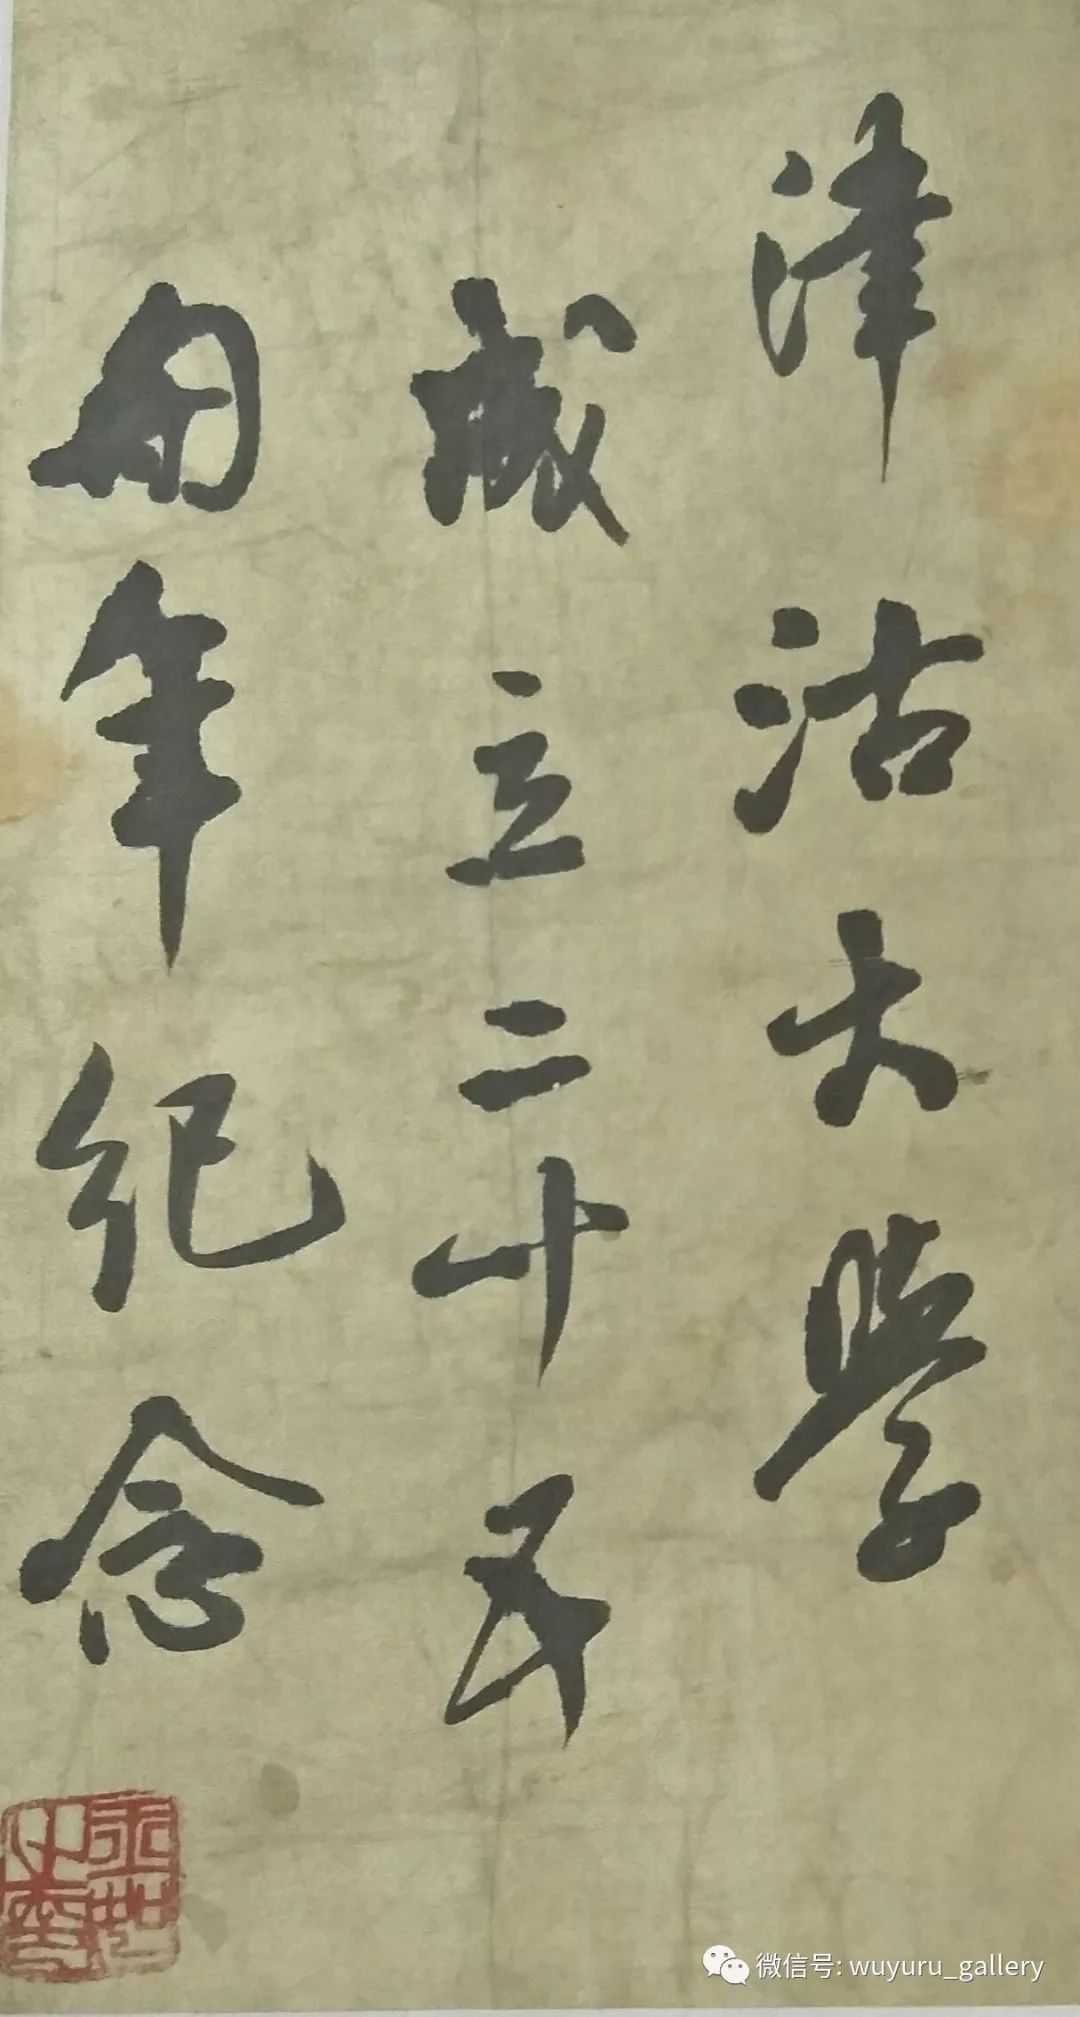 津沽大學
成立二十五
周年纪念
微信号: wuyuru_gallery